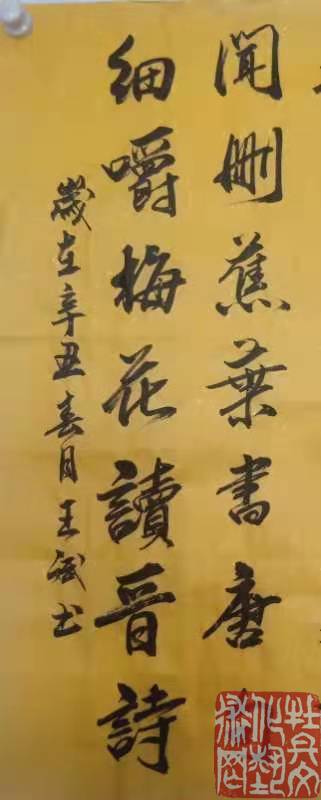 閒删蕉葉書唐
細嚼梅花讀晉詩
歲在辛丑春月王斌书